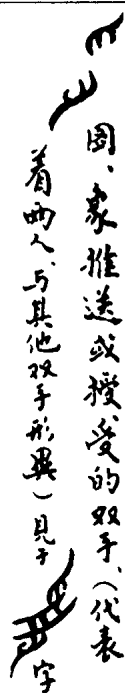 图、象推送或授受的双手、(代表
着两人、与其他双手形异)见于
字